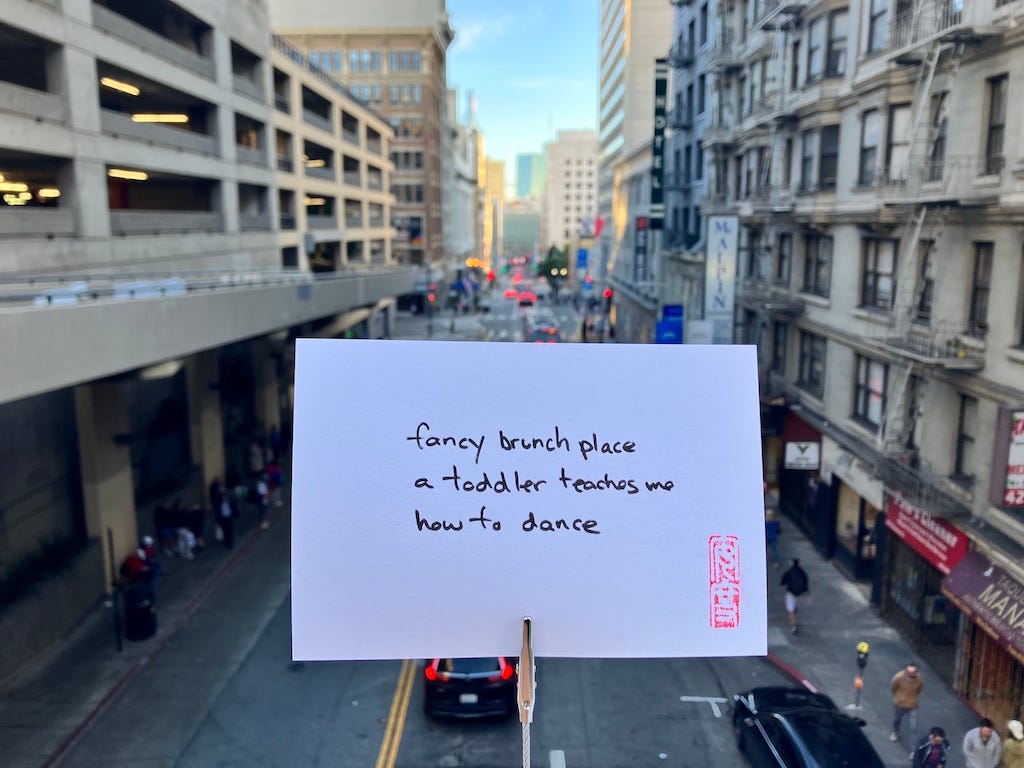 fancy brunch place
a toddler teaches me
how to dance
HOTEL
MALPIN